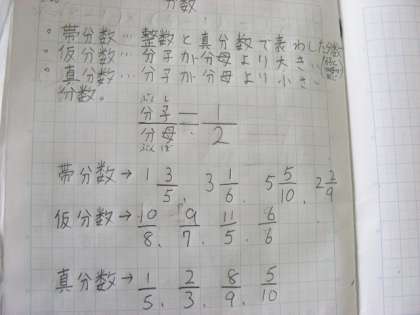 分数
・帯分数…整数と真分数で表わした分数
・仮分数…分子が分母より大きい
・真分数…分子が分母より小さい
分数。
ぶんし
分子/分母=1/2
ぶんぼ
帯分数→1 3/5、3 1/6、5 5/10、2 2/9
仮分数→10/8、9/7、11/5、6/6
真分数→1/5、2/3、8/9、5/10